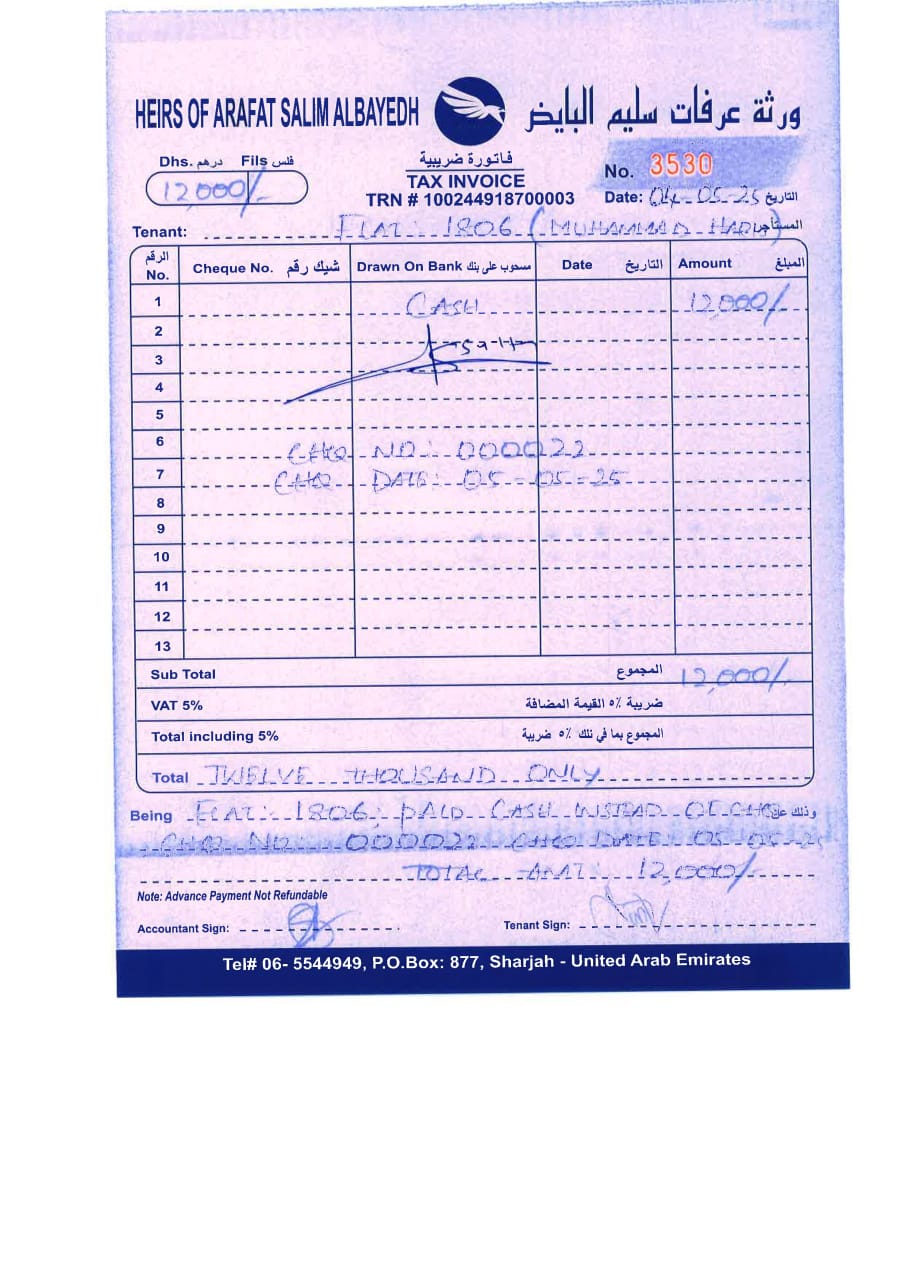 HEIRS OF ARAFAT SALIM ALBAYEDH ورثة عرفات سليم البايض
Dhs. درهم Fils فلس
12,000/-
فاتورة ضريبية
TAX INVOICE
TRN # 100244918700003
No. 3530
Date: 04-05-25 التاريخ
Tenant: FLAT: 1806 (MUHAMMAD HARIS) المستأجر
الرقم No. Cheque No. شيك رقم Drawn On Bank مسحوب على بنك Date التاريخ Amount المبلغ
1 CASH 12,000/-
2
3
4
5
6 CHQ NO: 000022
7 CHQ DATE: 05-05-25
8
9
10
11
12
13
Sub Total المجموع 12,000/-
VAT 5% ضريبة ٥٪ القيمة المضافة
Total including 5% المجموع بما في تلك ٥٪ ضريبة
Total TWELVE THOUSAND ONLY
Being FLAT: 1806, PAID CASH INSTEAD OF CHQ وذلك عن
CHQ NO: 000022 CHQ DATE 05-05-25
TOTAL AMT: 12,000/-
Note: Advance Payment Not Refundable
Accountant Sign: Tenant Sign:
Tel# 06- 5544949, P.O.Box: 877, Sharjah - United Arab Emirates